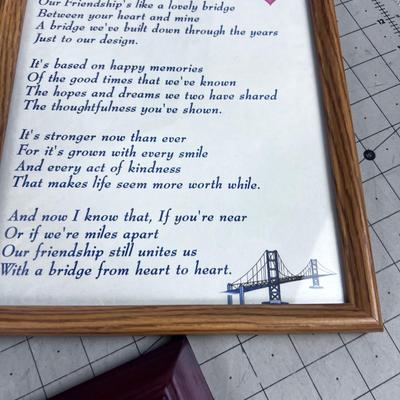 Our Friendship's like a lovely bridge
Between your heart and mine
A bridge we've built down through the years
Just to our design.
It's based on happy memories
Of the good times that we've known
The hopes and dreams we two have shared
The thoughtfulness you've shown.
It's stronger now than ever
For it's grown with every smile
And every act of kindness
That makes life seem more worth while.
And now I know that, If you're near
Or if we're miles apart
Our friendship still unites us
With a bridge from heart to heart.